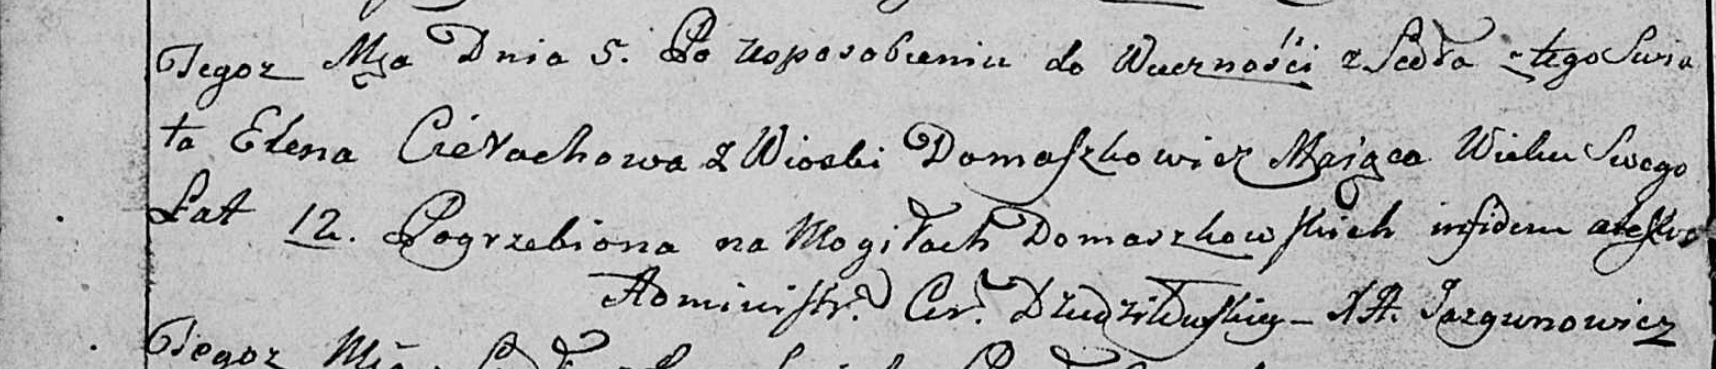 Tegoż Mca Dnia 5. Po usposobieniu do Wieczności z Szedła z tego Swia
ta Elena Cierachowa z Wioski Domaszkowicz Maiąca Wieku Swego
Łat 12. Pogrzebiona na Mogiłach Domaszkowskich in fidem attestor
Administr. Cer. Dziedziłowskiey X A. Jazgunowicz
Tegoż